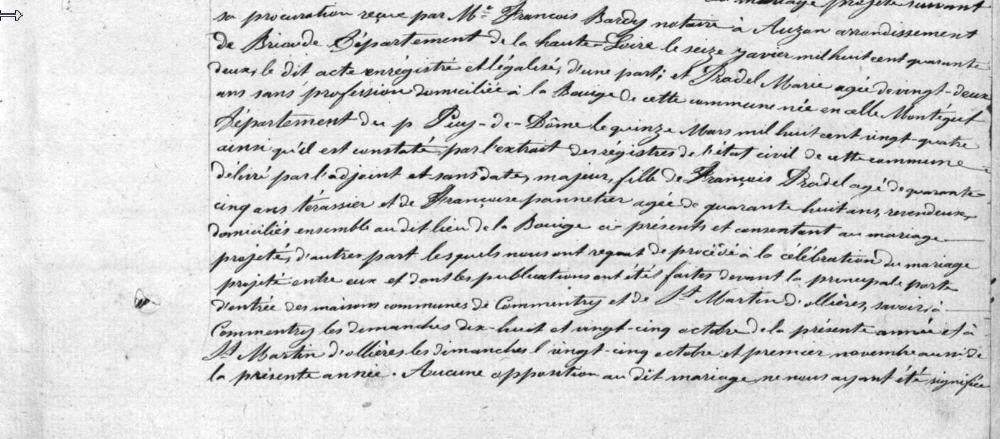 mariage projeté suivant
sa procuration reçue par Me. François Bardy notaire à Auzon arrondissement
de Brioude Département de la haute-Loire le seize janvier mil huit cent quarante
deux, le dit acte enrégistré et légalisé, d'une part; et Pradel Marie agée de vingt-deux
ans sans profession domiciliée à la Bouige de cette commune née en celle Montégut
Département du p. Puy-de-Dôme le quinze Mars mil huit cent vingt-quatre
ainsi qu'il est constaté par l'extrait des régistres de l'état civil de cette commune
délivré par l'adjoint et sans date, majeur, fille de François Pradel agé de quarante
cinq ans térassier et de Françoise ponnetier agée de quarante huit ans, revendeux,
domiciliés ensemble au dit lieu de la Bouige ci présents et consentant au mariage
projeté, d'autres part lesquels nous ont requit de procédé à la célébration du mariage
projeté entre eux et dont les publications ont été faites devant la principale porte
d'entrée des maisons communes de Commentry et de St. Martin d'ollières, savoir: à
Commentry les dimanches dix-huit et vingt-cinq octobre de la présente année et à
St. Martin d'ollières les dimanches vingt-cinq octobre et premier novembre aussi de
la présente année. Aucune opposition au dit mariage ne nous ayant été signifiée